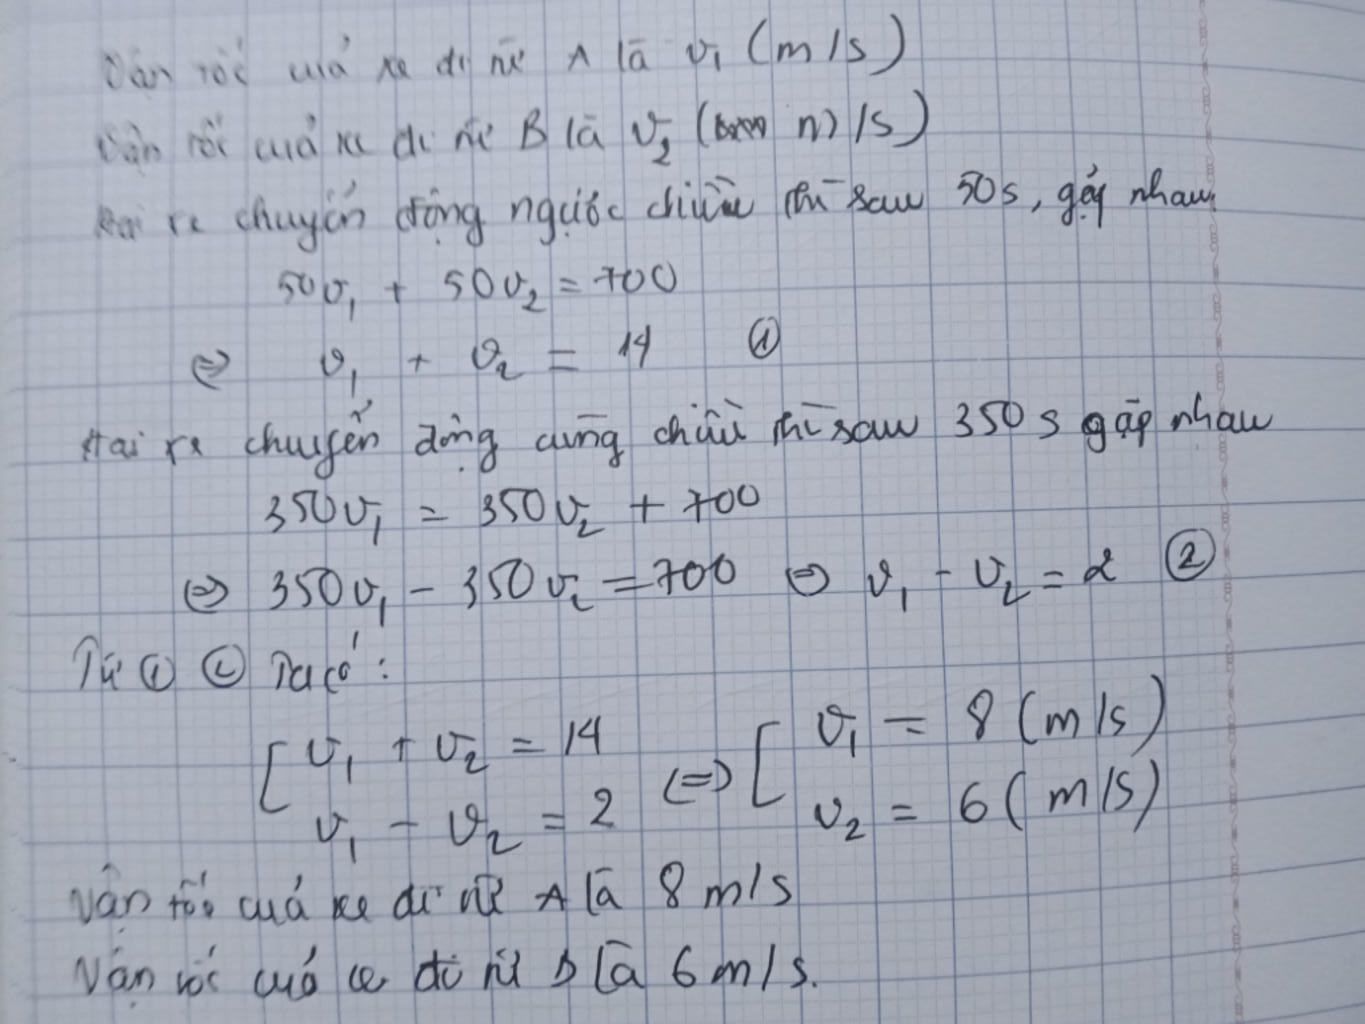 Vận tốc của xe đi từ A là v₁ (m/s)
Vận tốc của xe đi từ B là v₂ ( m/s)
Hai xe chuyển động ngược chiều thì sau 50s, gặp nhau
50v₁ + 50v₂ = 700
⇔ v₁ + v₂ = 14 ①
Hai xe chuyển động cùng chiều thì sau 350s gặp nhau
350v₁ = 350v₂ + 700
⇔ 350v₁ - 350v₂ = 700 ⇔ v₁ - v₂ = 2 ②
Từ ① ② Ta có:
[ v₁ + v₂ = 14 ⇔ [ v₁ = 8 (m/s)
v₁ - v₂ = 2 v₂ = 6 (m/s)
Vận tốc của xe đi từ A là 8 m/s
Vận tốc của xe đi từ B là 6 m/s.